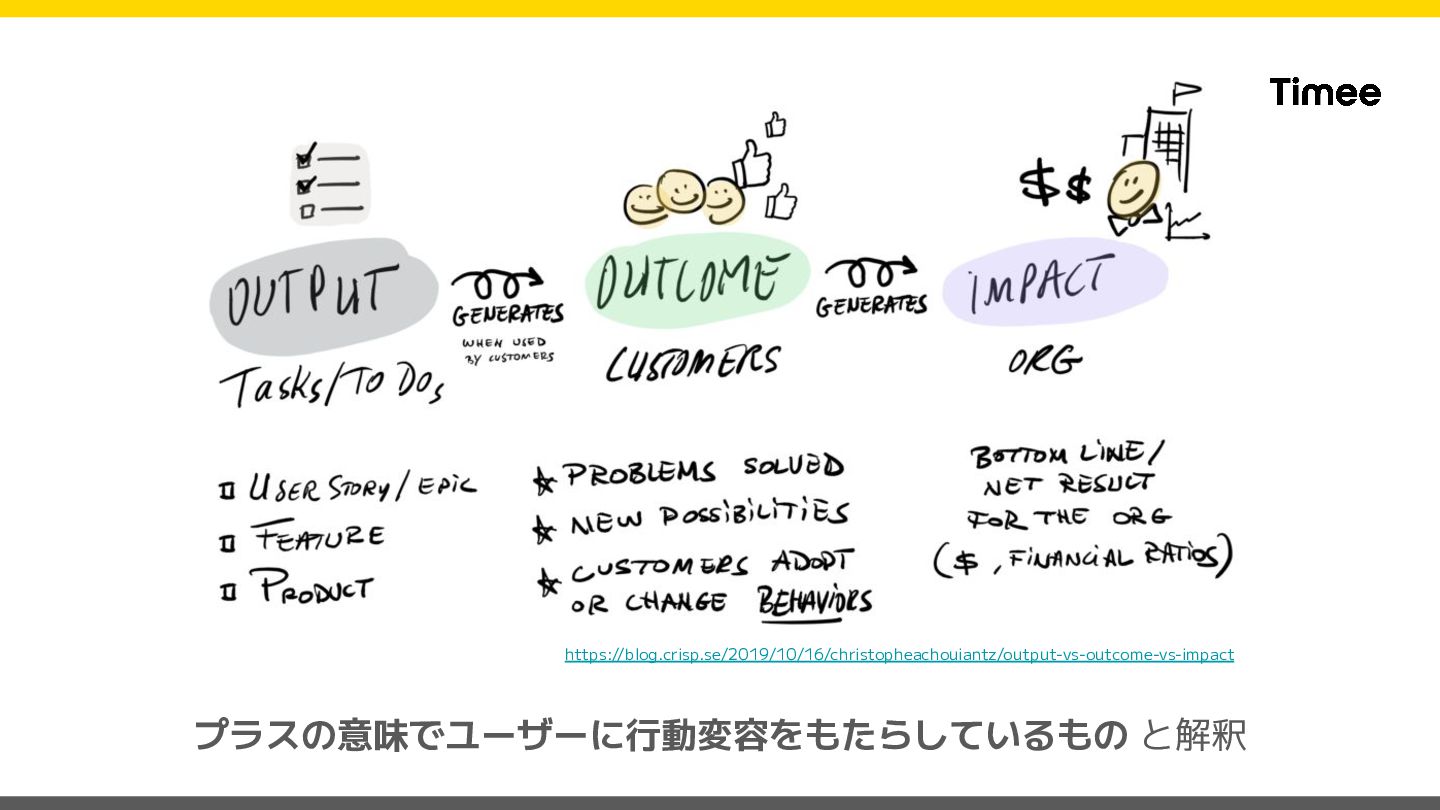 Timee
$ $
OUTPUT
GENERATES
WHEN USED
BY CUSTOMERS
OUTCOME
GENERATES
IMPACT
Tasks/To Dos
CUSTOMERS
ORG
USER STORY/EPIC
FEATURE
PRODUCT
PROBLEMS SOLVED
NEW POSSIBILITIES
CUSTOMERS ADOPT
OR CHANGE BEHAVIORS
BOTTOM LINE/
NET RESULT
FOR THE ORG
($, FINANCIAL RATIOS)
https://blog.crisp.se/2019/10/16/christopheachouiantz/output-vs-outcome-vs-impact
プラスの意味でユーザーに行動変容をもたらしているもの と解釈